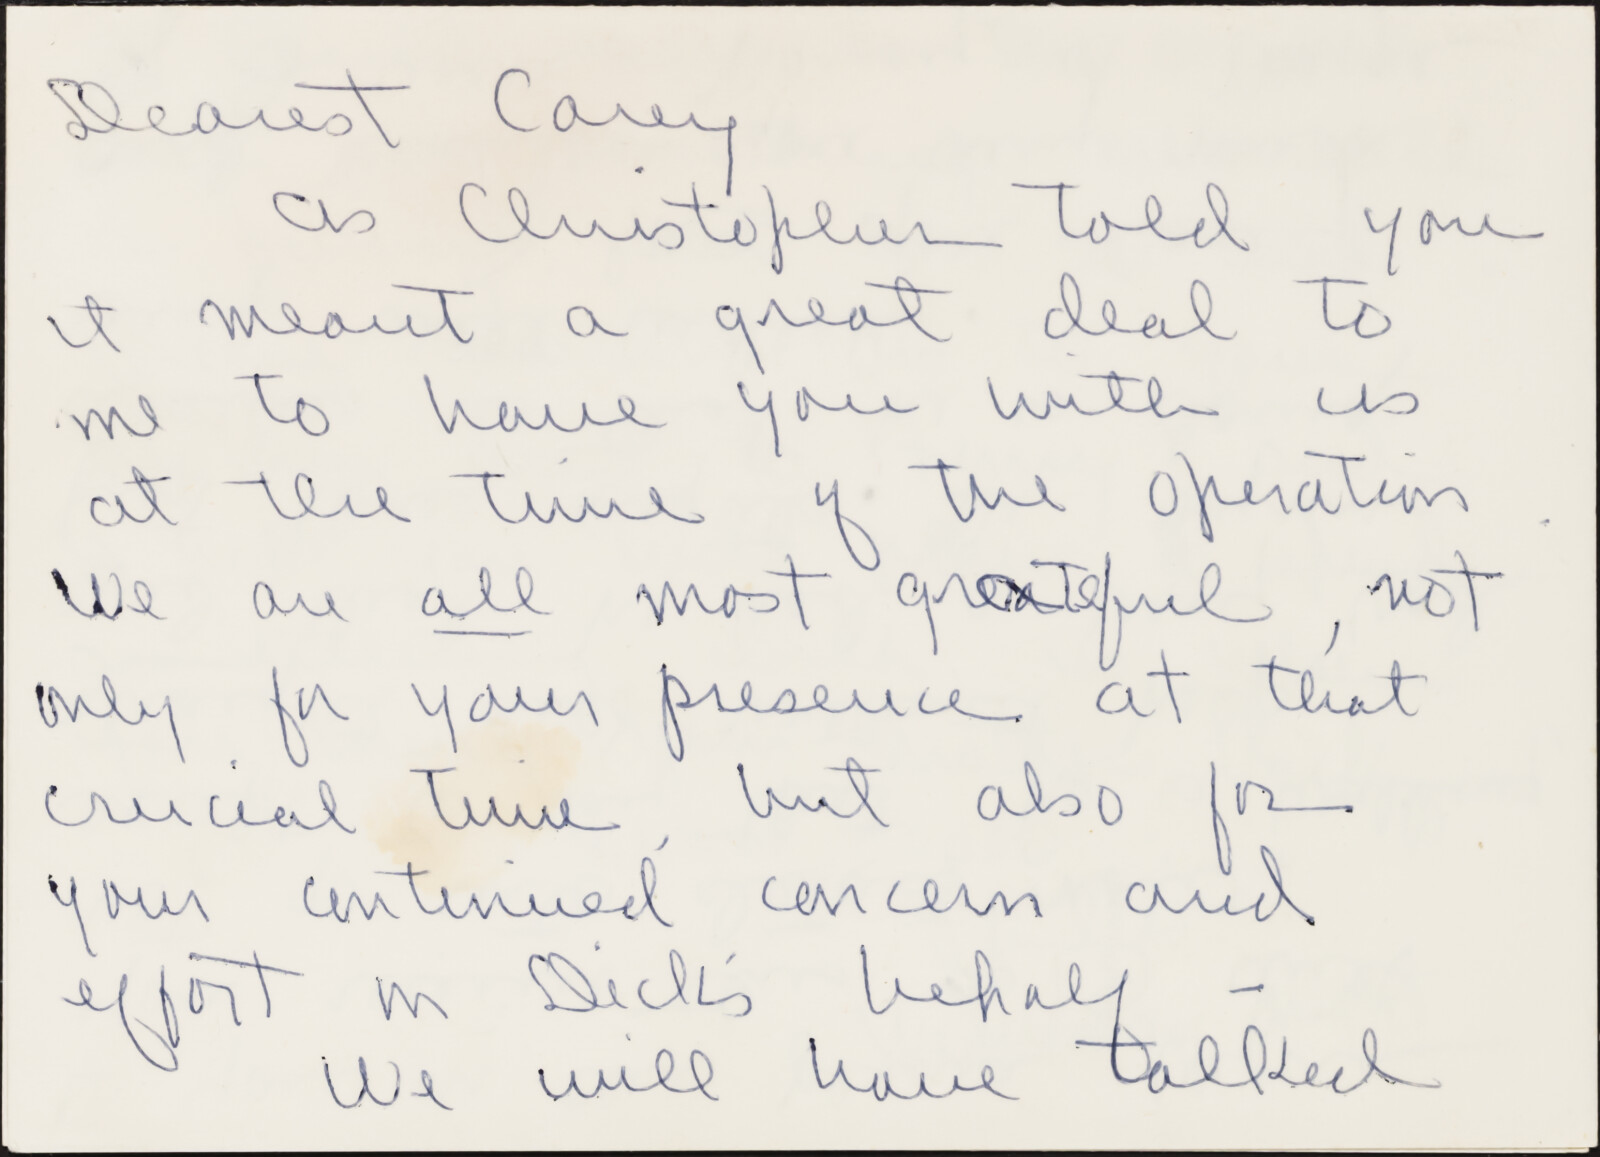 Dearest Carey
as Christopher told you
it meant a great deal to
me to have you with us
at the time of the operation.
We are all most grateful, not
only for your presence at that
crucial time, but also for
your continued concern and
effort on Dick's behalf -
We will have talked